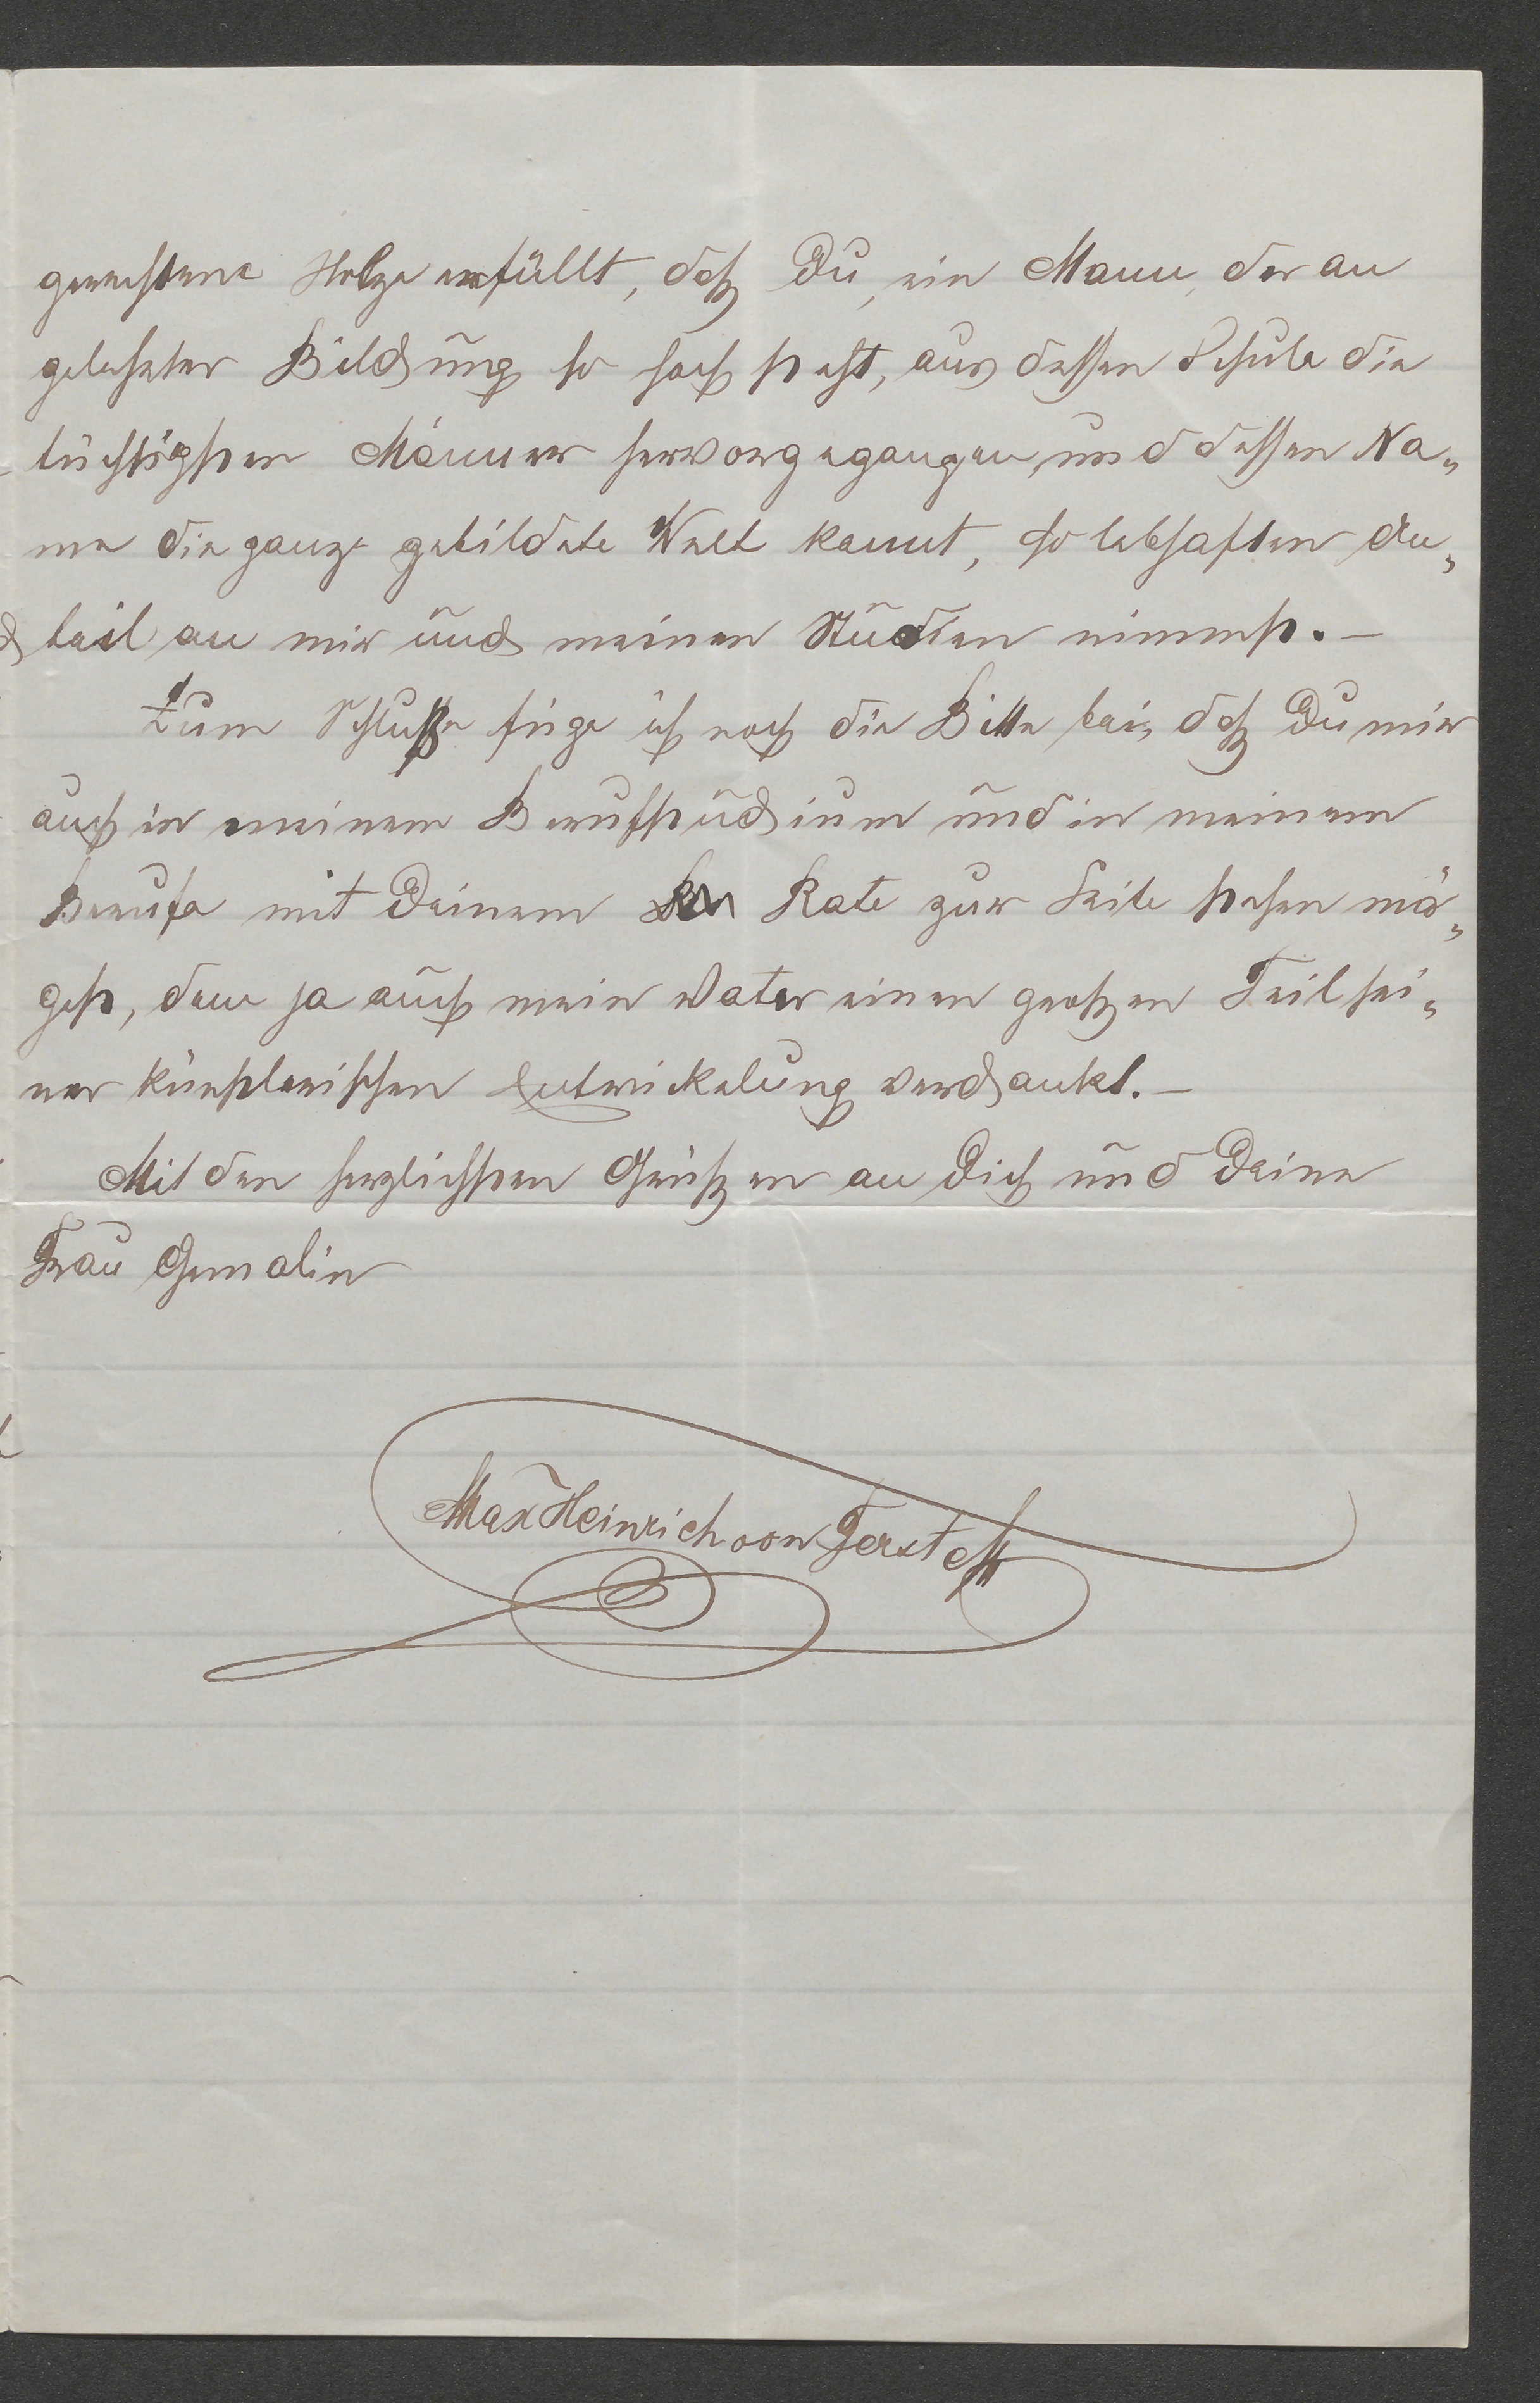 gerechtem Stolze erfüllt, daß Du, ein Mann, der an
gelehrter Bildung so hoch steht, aus dessen Schule die
tüchtigsten Männer hervorgegangen und dessen Na„
me die ganze gebildete Welt kennt, so lebhaften An„
teil an mir und meinen Studien nimmst. –
Zum Schluße füge ich noch die Bitte bei, daß Du mir
auch in meinem Berufsstudium und in meinem
Berufe mit Deinem Rate zur Seite stehen mö„
gest, dem ja auch mein Vater einen großen Teil sei„
ner künstlerischen Entwickelung verdankt. –
Mit den herzlichsten Grüßen an Dich und Deine
Frau Gemalin
Max Heinrich von Ferstel